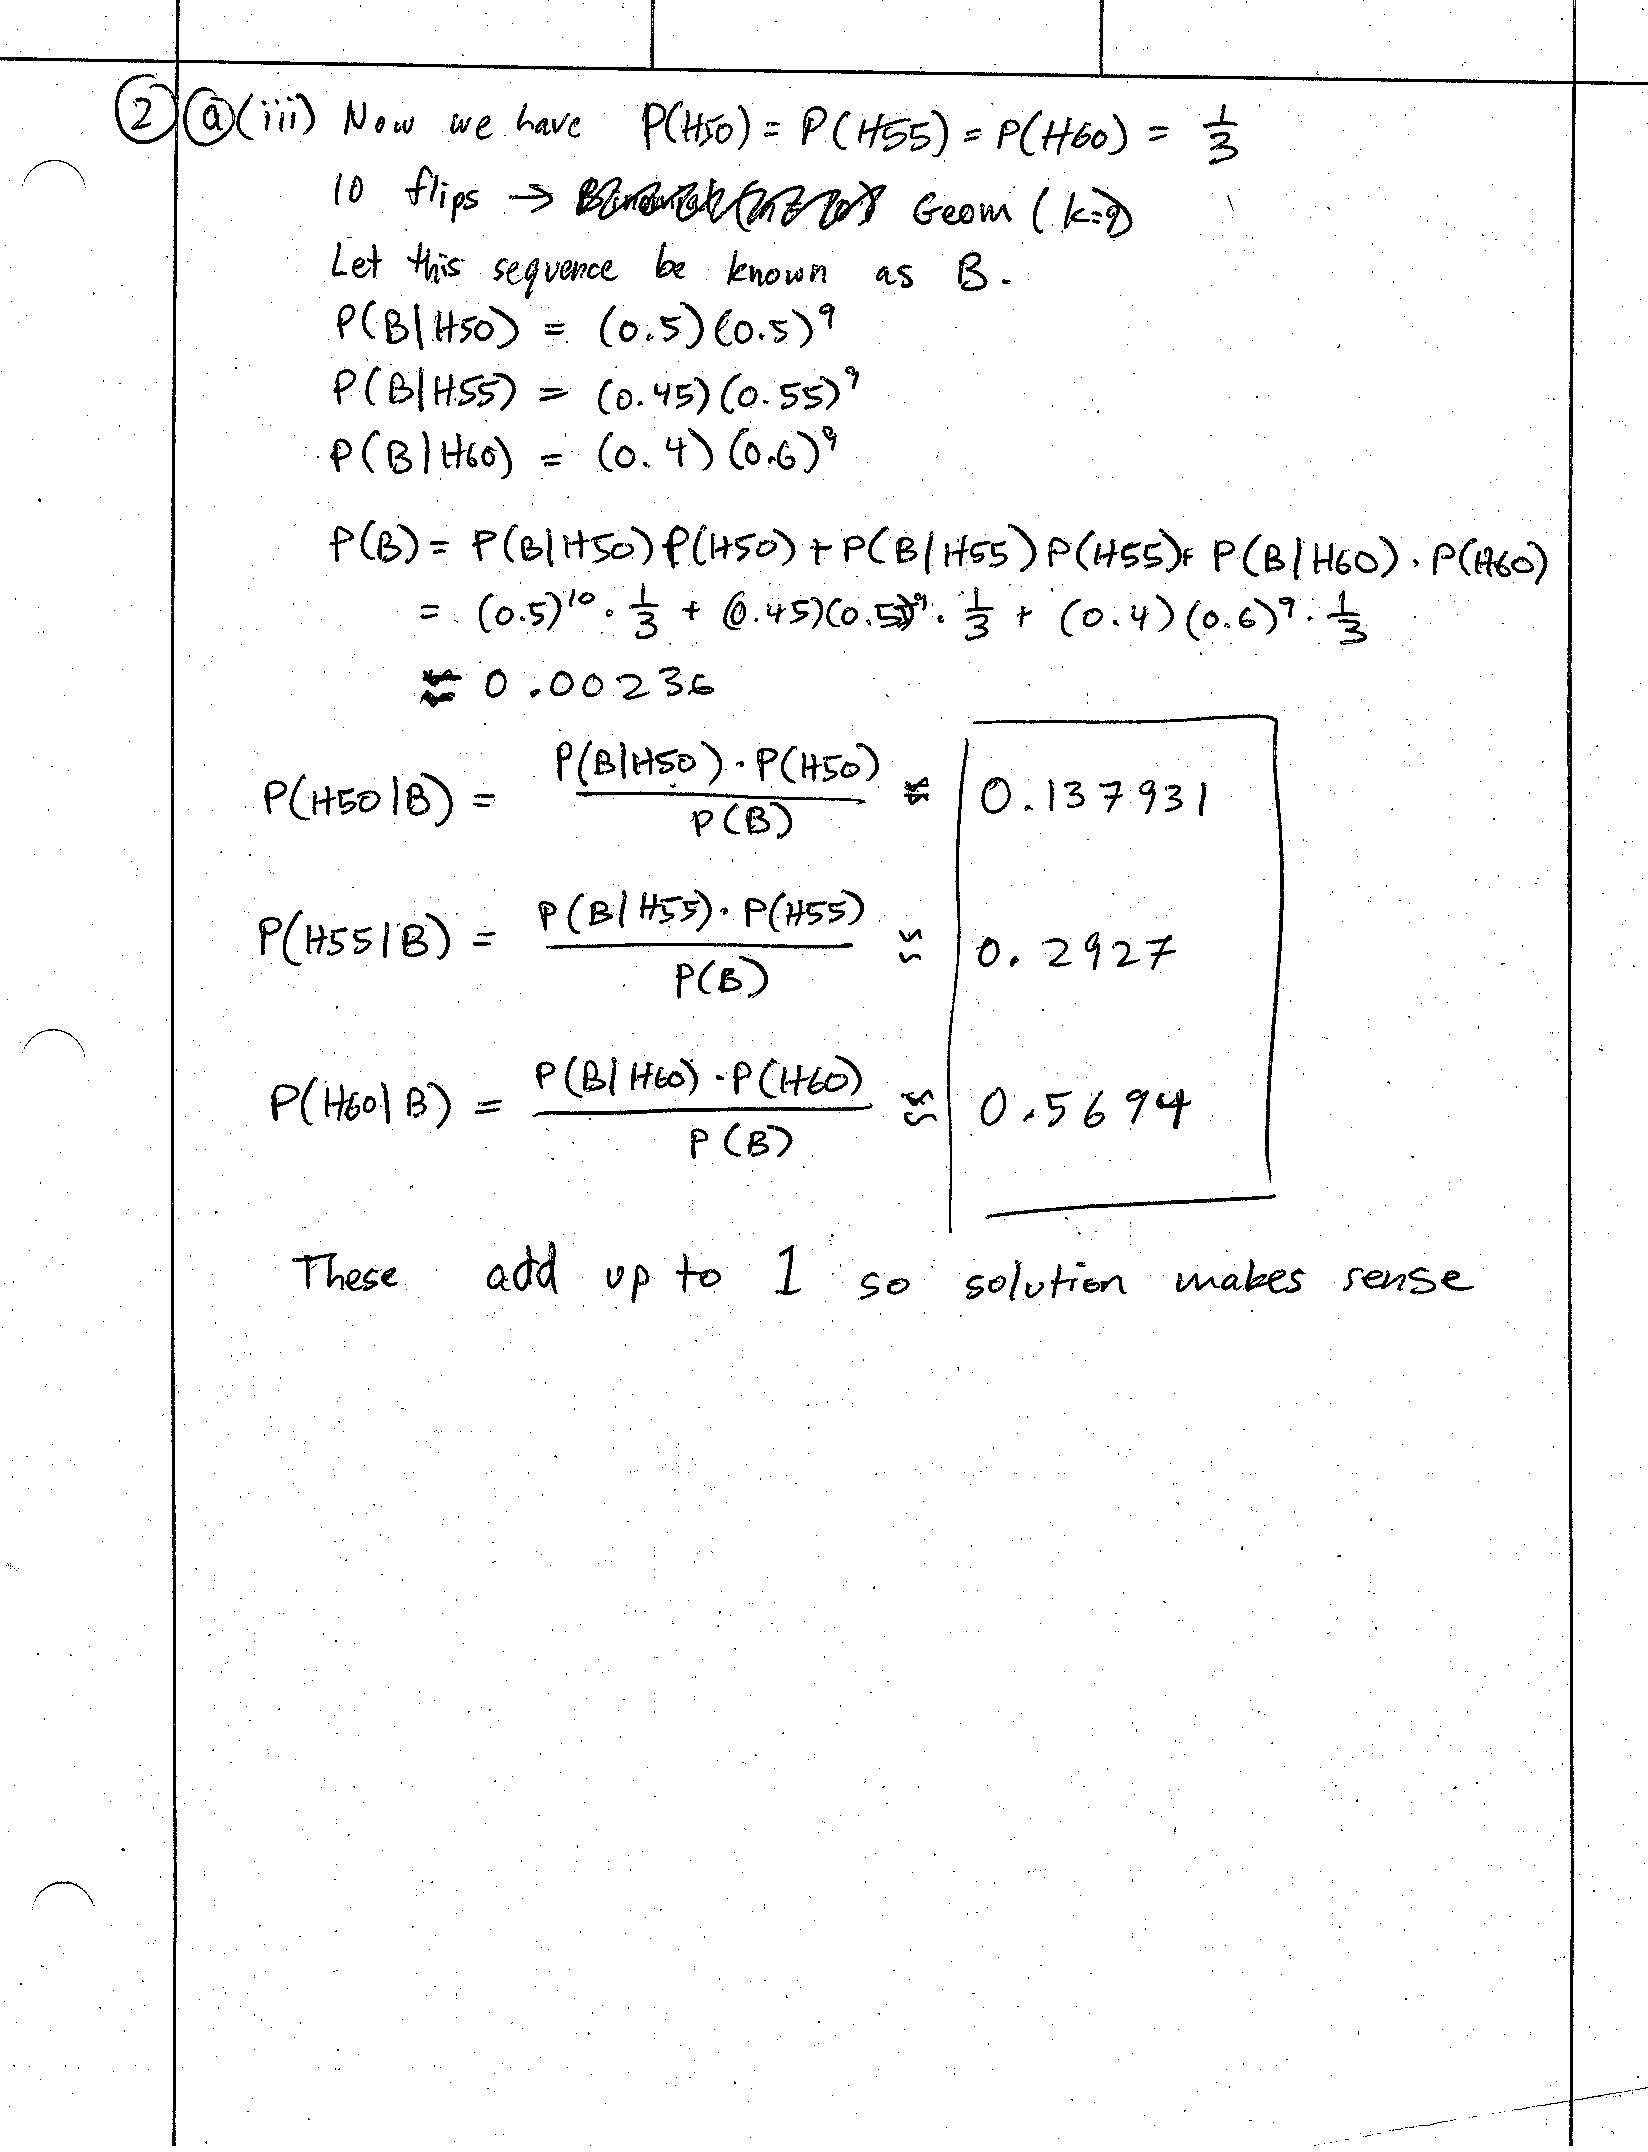 ② ⓐ (iii) Now we have P(H50) = P(H55) = P(H60) = 1/3
10 flips → Geom (k=9)
Let this sequence be known as B.
P(B|H50) = (0.5)(0.5)⁹
P(B|H55) = (0.45)(0.55)⁹
P(B|H60) = (0.4)(0.6)⁹
P(B) = P(B|H50)P(H50) + P(B|H55)P(H55) + P(B|H60)·P(H60)
= (0.5)¹⁰ · 1/3 + (0.45)(0.55)⁹ · 1/3 + (0.4)(0.6)⁹ · 1/3
≈ 0.00236
P(H50|B) = P(B|H50)·P(H50) / P(B) ≈ 0.137931
P(H55|B) = P(B|H55)·P(H55) / P(B) ≈ 0.2927
P(H60|B) = P(B|H60)·P(H60) / P(B) ≈ 0.5694
These add up to 1 so solution makes sense